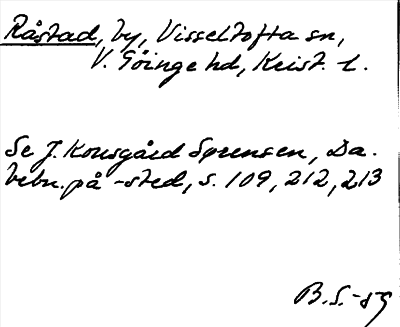 Råstad, by, Visseltofta sn,
V. Göinge hd, Krist. l.
Se J. Kousgård Sørensen, Da.
bebn. på -sted, s. 109, 212, 213
B.S.-59